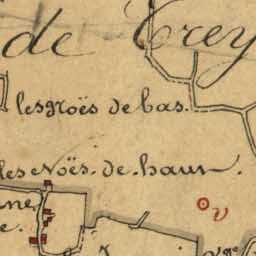 de Trey
les Noës de bas.
les Noës. de. haut.
v